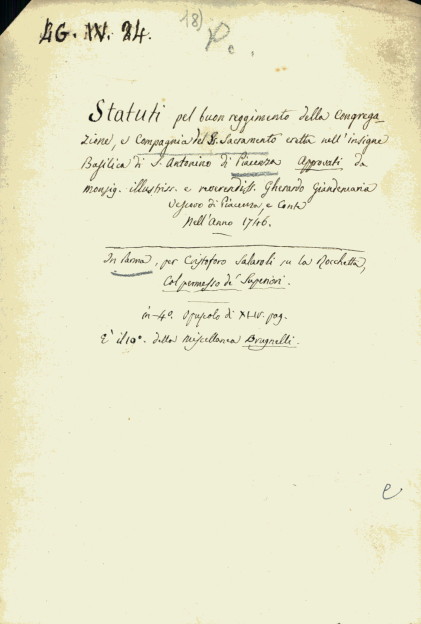 LG. IV. 24.
18)
Pc.
Statuti pel buon reggimento della Congrega
zione, e Compagnia del SS. Sacramento eretta nell'insigne
Basilica di S. Antonino di Piacenza Approvati da
Monsig. illustriss. e reverendiss. Gherardo Giandemaria
Vescovo di Piacenza, e Conte
Nell'Anno 1746.
In Parma, per Cristoforo Salaroli su la Rocchetta,
Col permesso de' Superiori.
in-4º. Opuscolo di XLIV. pag.
E' il 10º. della Miscellanea Brugnelli.
e